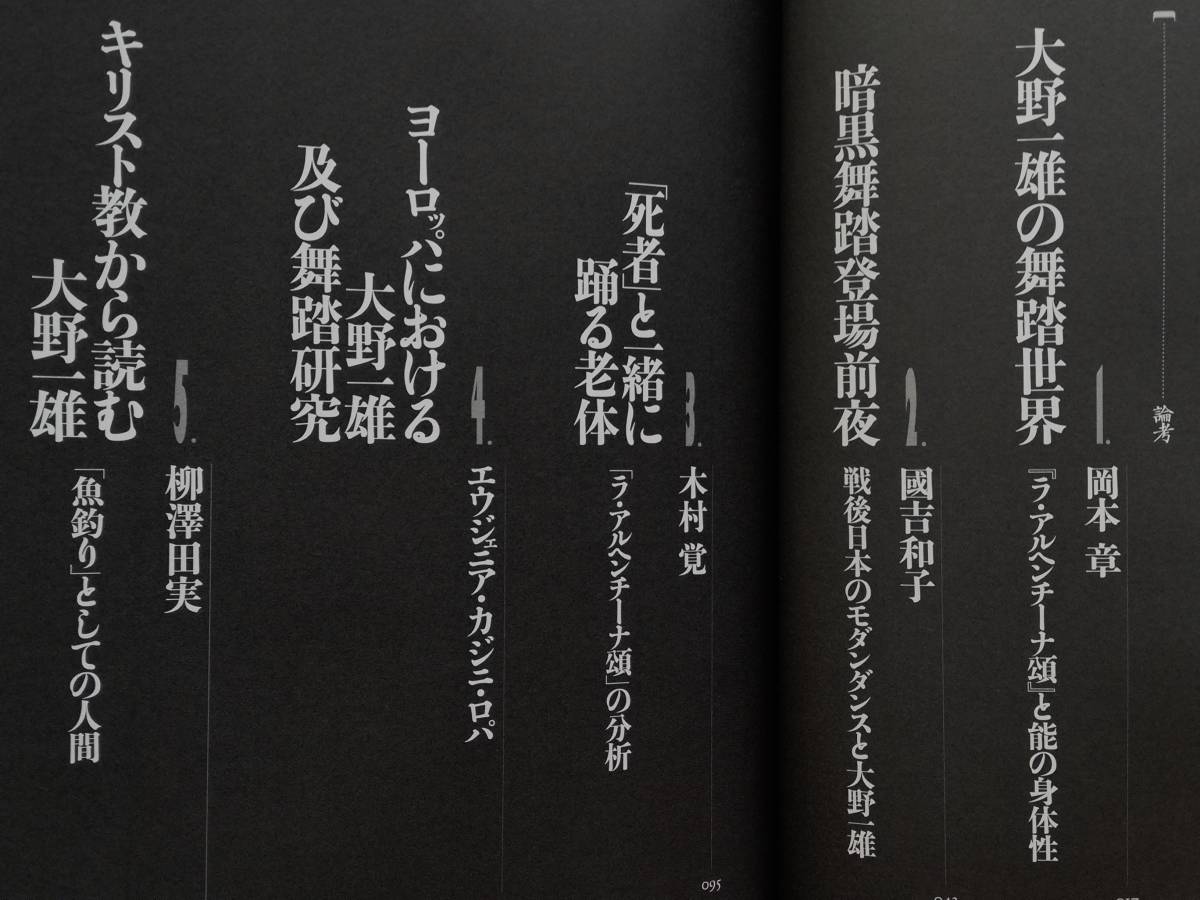 論考
1.
大野一雄の舞踏世界
岡本 章
『ラ・アルヘンチーナ頌』と能の身体性
2.
暗黒舞踏登場前夜
國吉和子
戦後日本のモダンダンスと大野一雄
3.
「死者」と一緒に
踊る老体
木村 覚
「ラ・アルヘンチーナ頌」の分析
095
4.
ヨーロッパにおける
大野一雄
及び舞踏研究
エウジェニア・カジニ・ロパ
5.
キリスト教から読む
大野一雄
柳澤田実
「魚釣り」としての人間